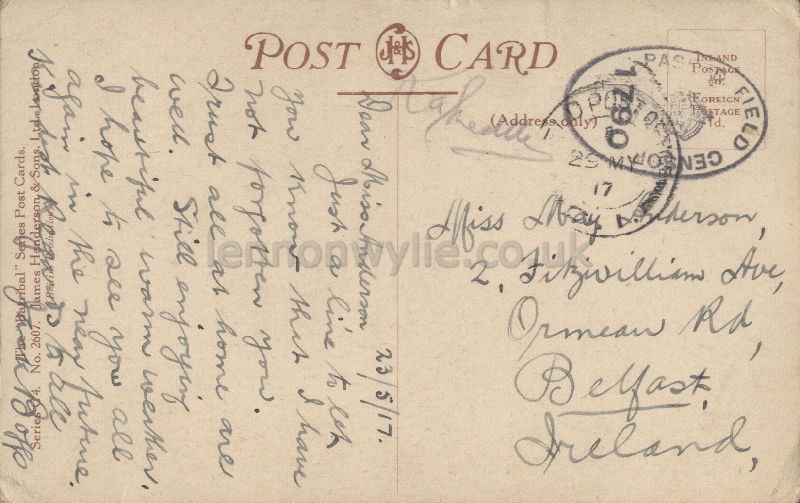 POST CARD
J H & S
(Address only)
INLAND
POSTAGE
½d.
FOREIGN
POSTAGE
1d.
PASSED FIELD CENSOR
1790
D POST OF
29 MY
17
23/5/17.
Dear Miss Anderson
Just a line to let
you know that I have
not forgotten you.
Trust all at home are
well. Still enjoying
beautiful warm weather.
I hope to see you all
again in the near future.
Kindest Regards to all
Miss May Anderson,
2, Fitzwilliam Ave,
Ormeau Rd,
Belfast,
Ireland,
Series No. 2607. James Henderson & Sons, Ltd., London.
Series Post Cards.
lennonwylie.co.uk